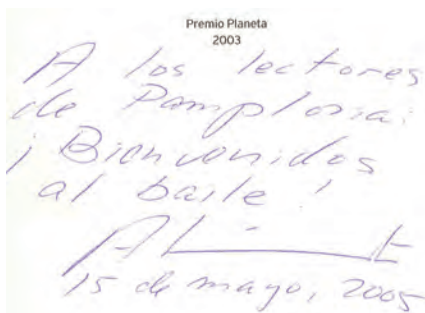 Premio Planeta
2003
A los lectores
de Pamplona:
¡Bienvenidos
al baile!
15 de mayo, 2005